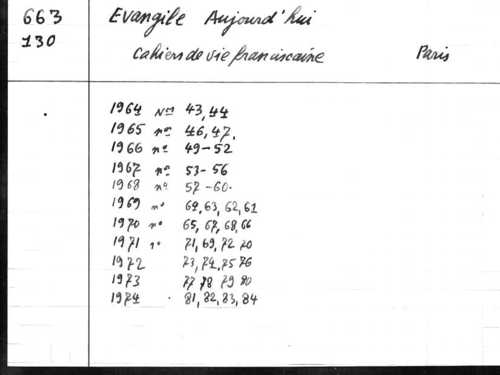 663
130
Evangile Aujourd'hui
Cahiers de vie franciscaine Paris
1964 Nos 43, 44
1965 nos 46, 47.
1966 nos 49-52
1967 nos 53-56
1968 nos 57-60.
1969 nos 69, 63, 62, 61
1970 nos 65, 67, 68, 66
1971 nos 71, 69, 72 70
1972 73, 74, 75 76
1973 77 78 79 80
1974 81, 82, 83, 84